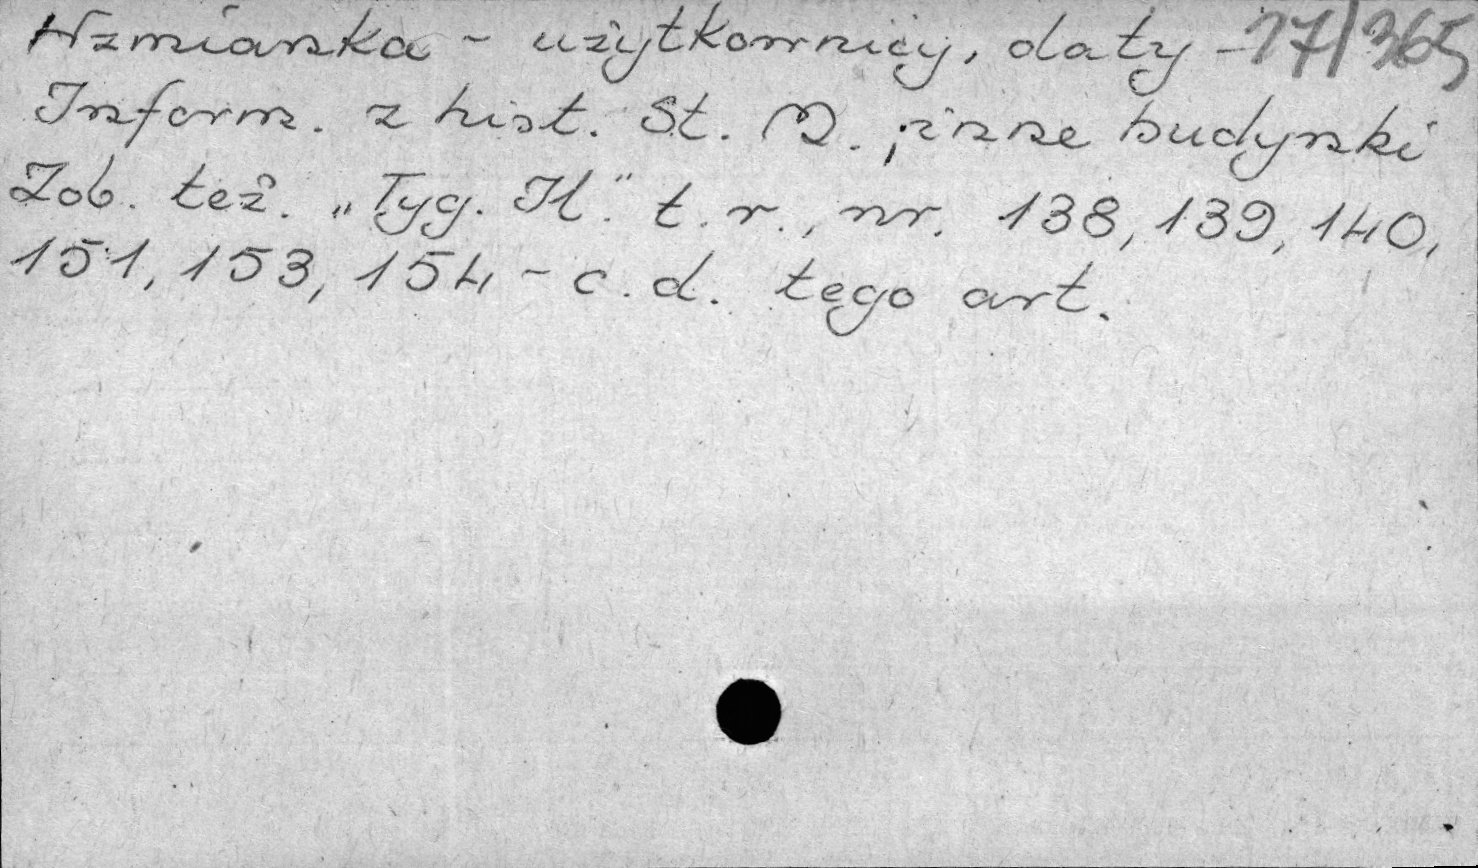 Wzmianka - użytkownicy, daty - 17/365
Inform. z hist. St. M. ; inne budynki
Zob. też. „Tyg. Il." t. r., nr. 138, 139, 140,
151, 153, 154 - c. d. tego art.